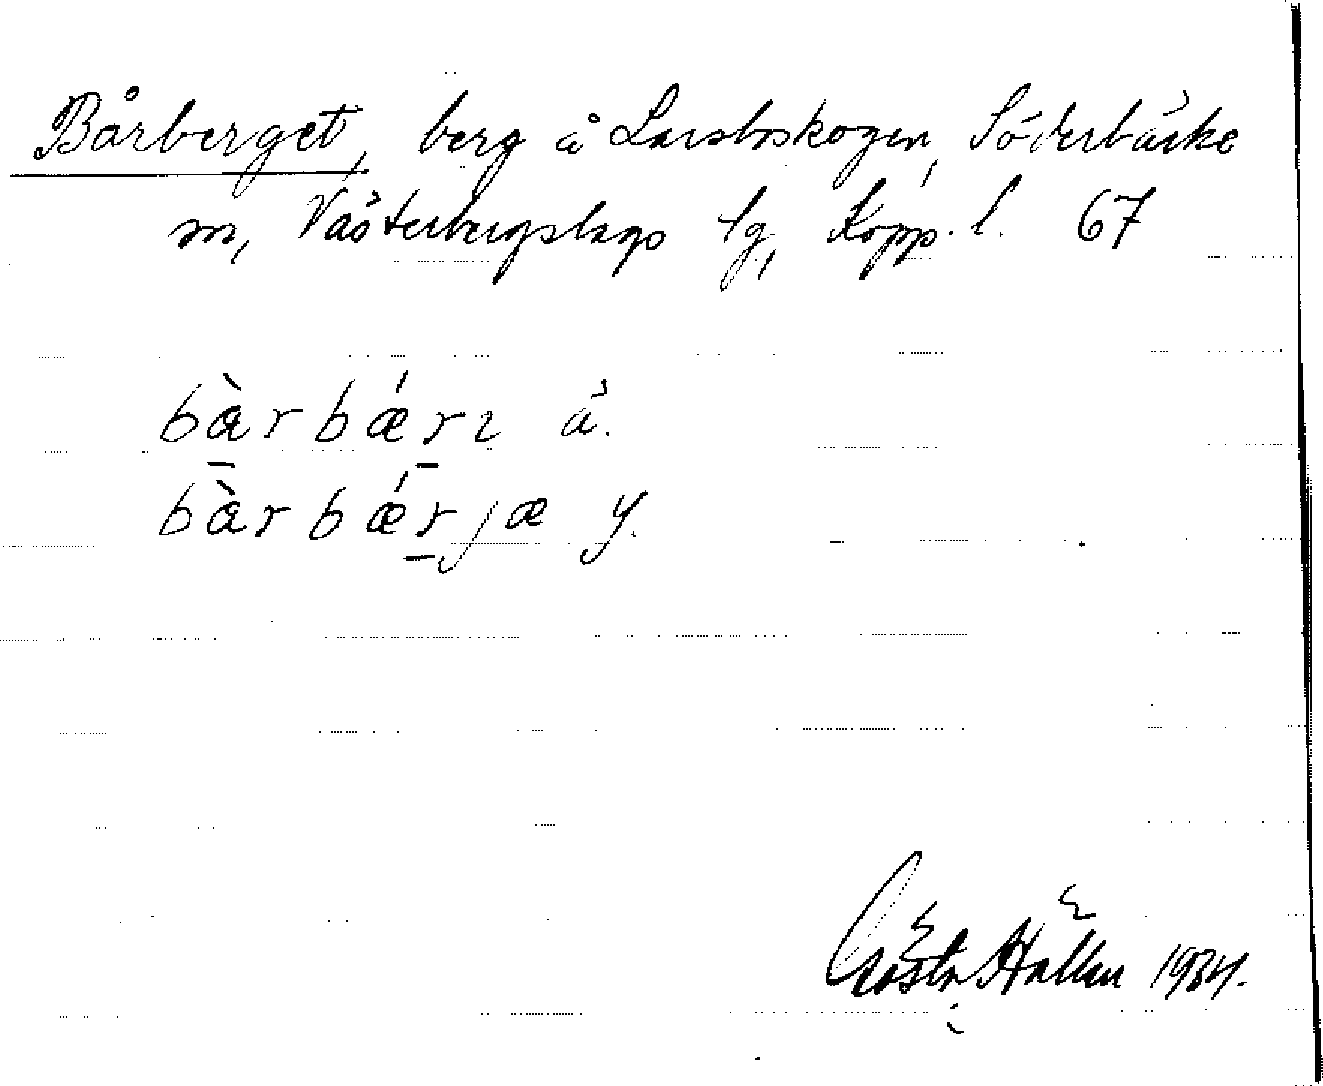 Bårberget, berg å Larsboskogen, Söderbärke
sn, Västerbergslags tg, Kopp. l. 67
bàrbǽrɩ ä.
bàrbǽrjæ y.
Gösta Hallén 1934.